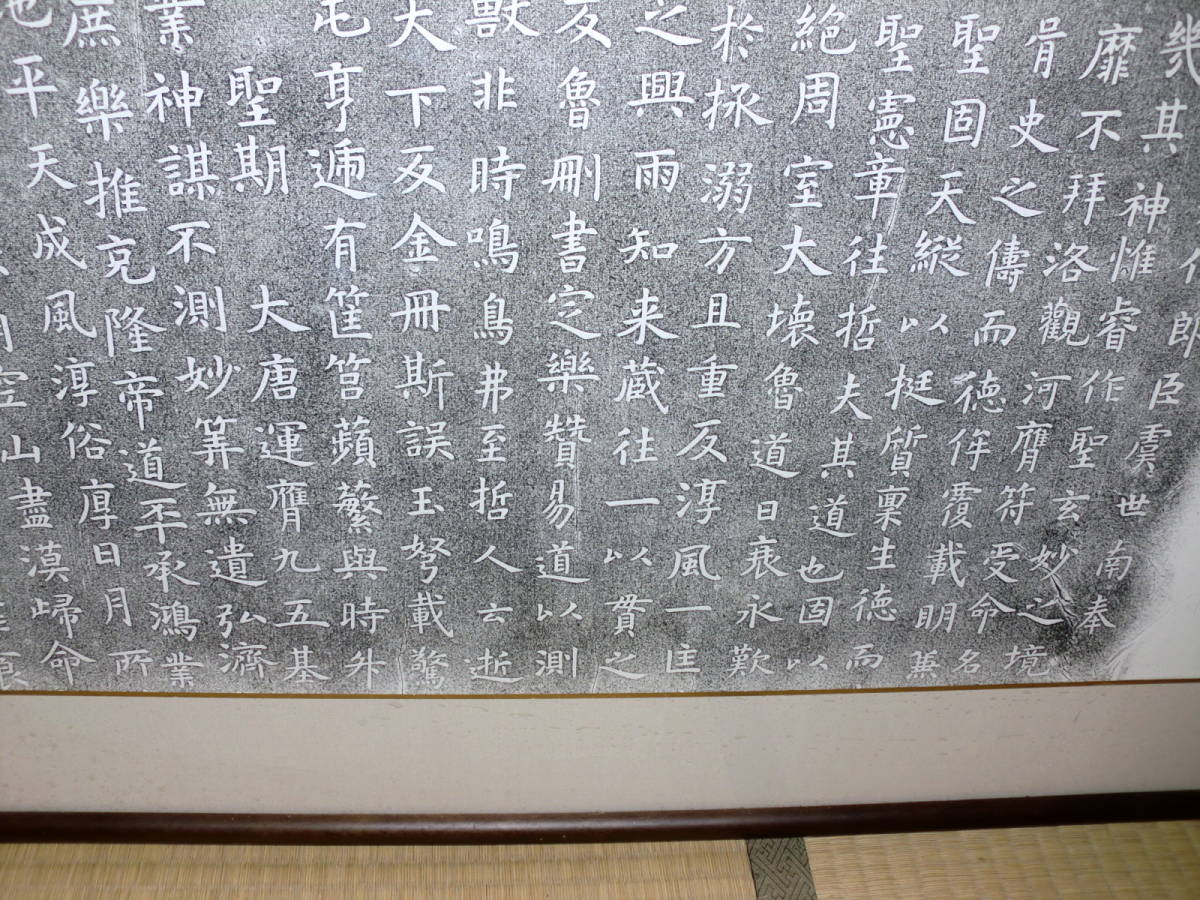 郎臣虞世南奉
幾其神惟睿作聖玄妙之境
靡不拜洛觀河膺符受命名
胥史之儔而德侔覆載明兼
聖固天縱以挺質稟生德而
聖憲章往哲夫其道也固以
絕周室大壞魯道日衰永歎
於拯溺方且重反淳風一匡
之興雨知来蔵往一以貫之
反魯刪書定樂贊易道以測
獸非時鳴鳥弗至哲人云逝
大下反金冊斯誤玉弩載驚
屯亨遞有筐筥蘋蘩與時升
聖期大唐運膺九五基
業神謀不測妙筭無遺弘濟
庶樂推克隆帝道丕承鴻業
地平天成風淳俗厚日月所
空山盡漠歸命